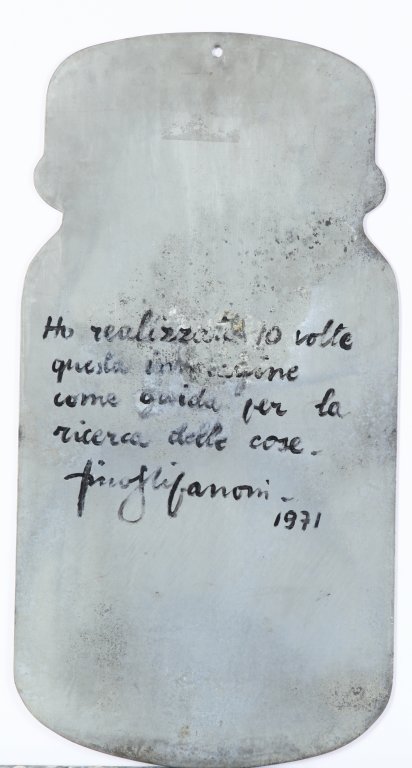 Ho realizzato 10 volte
questa immagine
come guida per la
ricerca delle cose.
1971